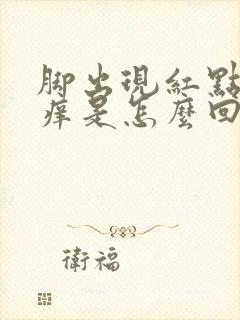 脚出現紅點
痒是怎麽回
衛福